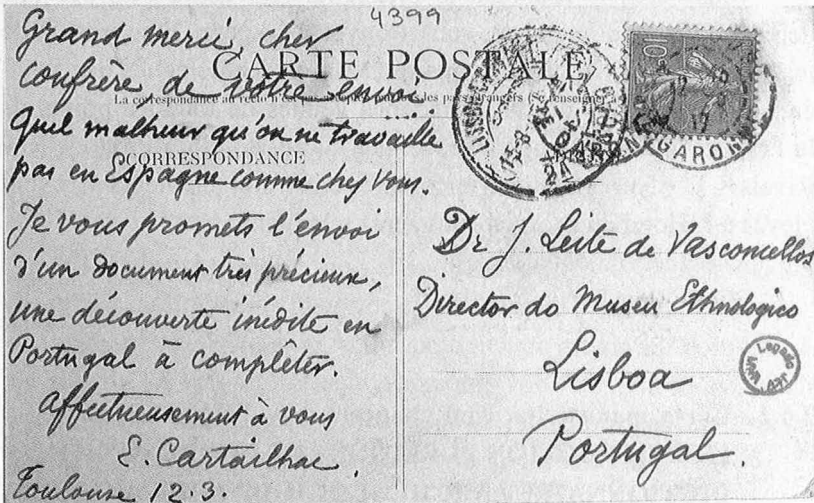 4399
CARTE POSTALE
La correspondance au recto n'est pas acceptée par tous les pays étrangers (Se renseigner
CORRESPONDANCE
Grand merci, cher
confrère, de votre envoi.
Quel malheur qu'on ne travaille
pas en Espagne comme chez vous.
Je vous promets l'envoi
d'un document très précieux,
une découverte inédite en
Portugal à compléter.
Affectueusement à vous
E. Cartailhac
Toulouse 12.3.
Dr J. Leite de Vasconcellos
Director do Museu Ethnologico
Lisboa
Portugal.
10
GARONNE
Legado